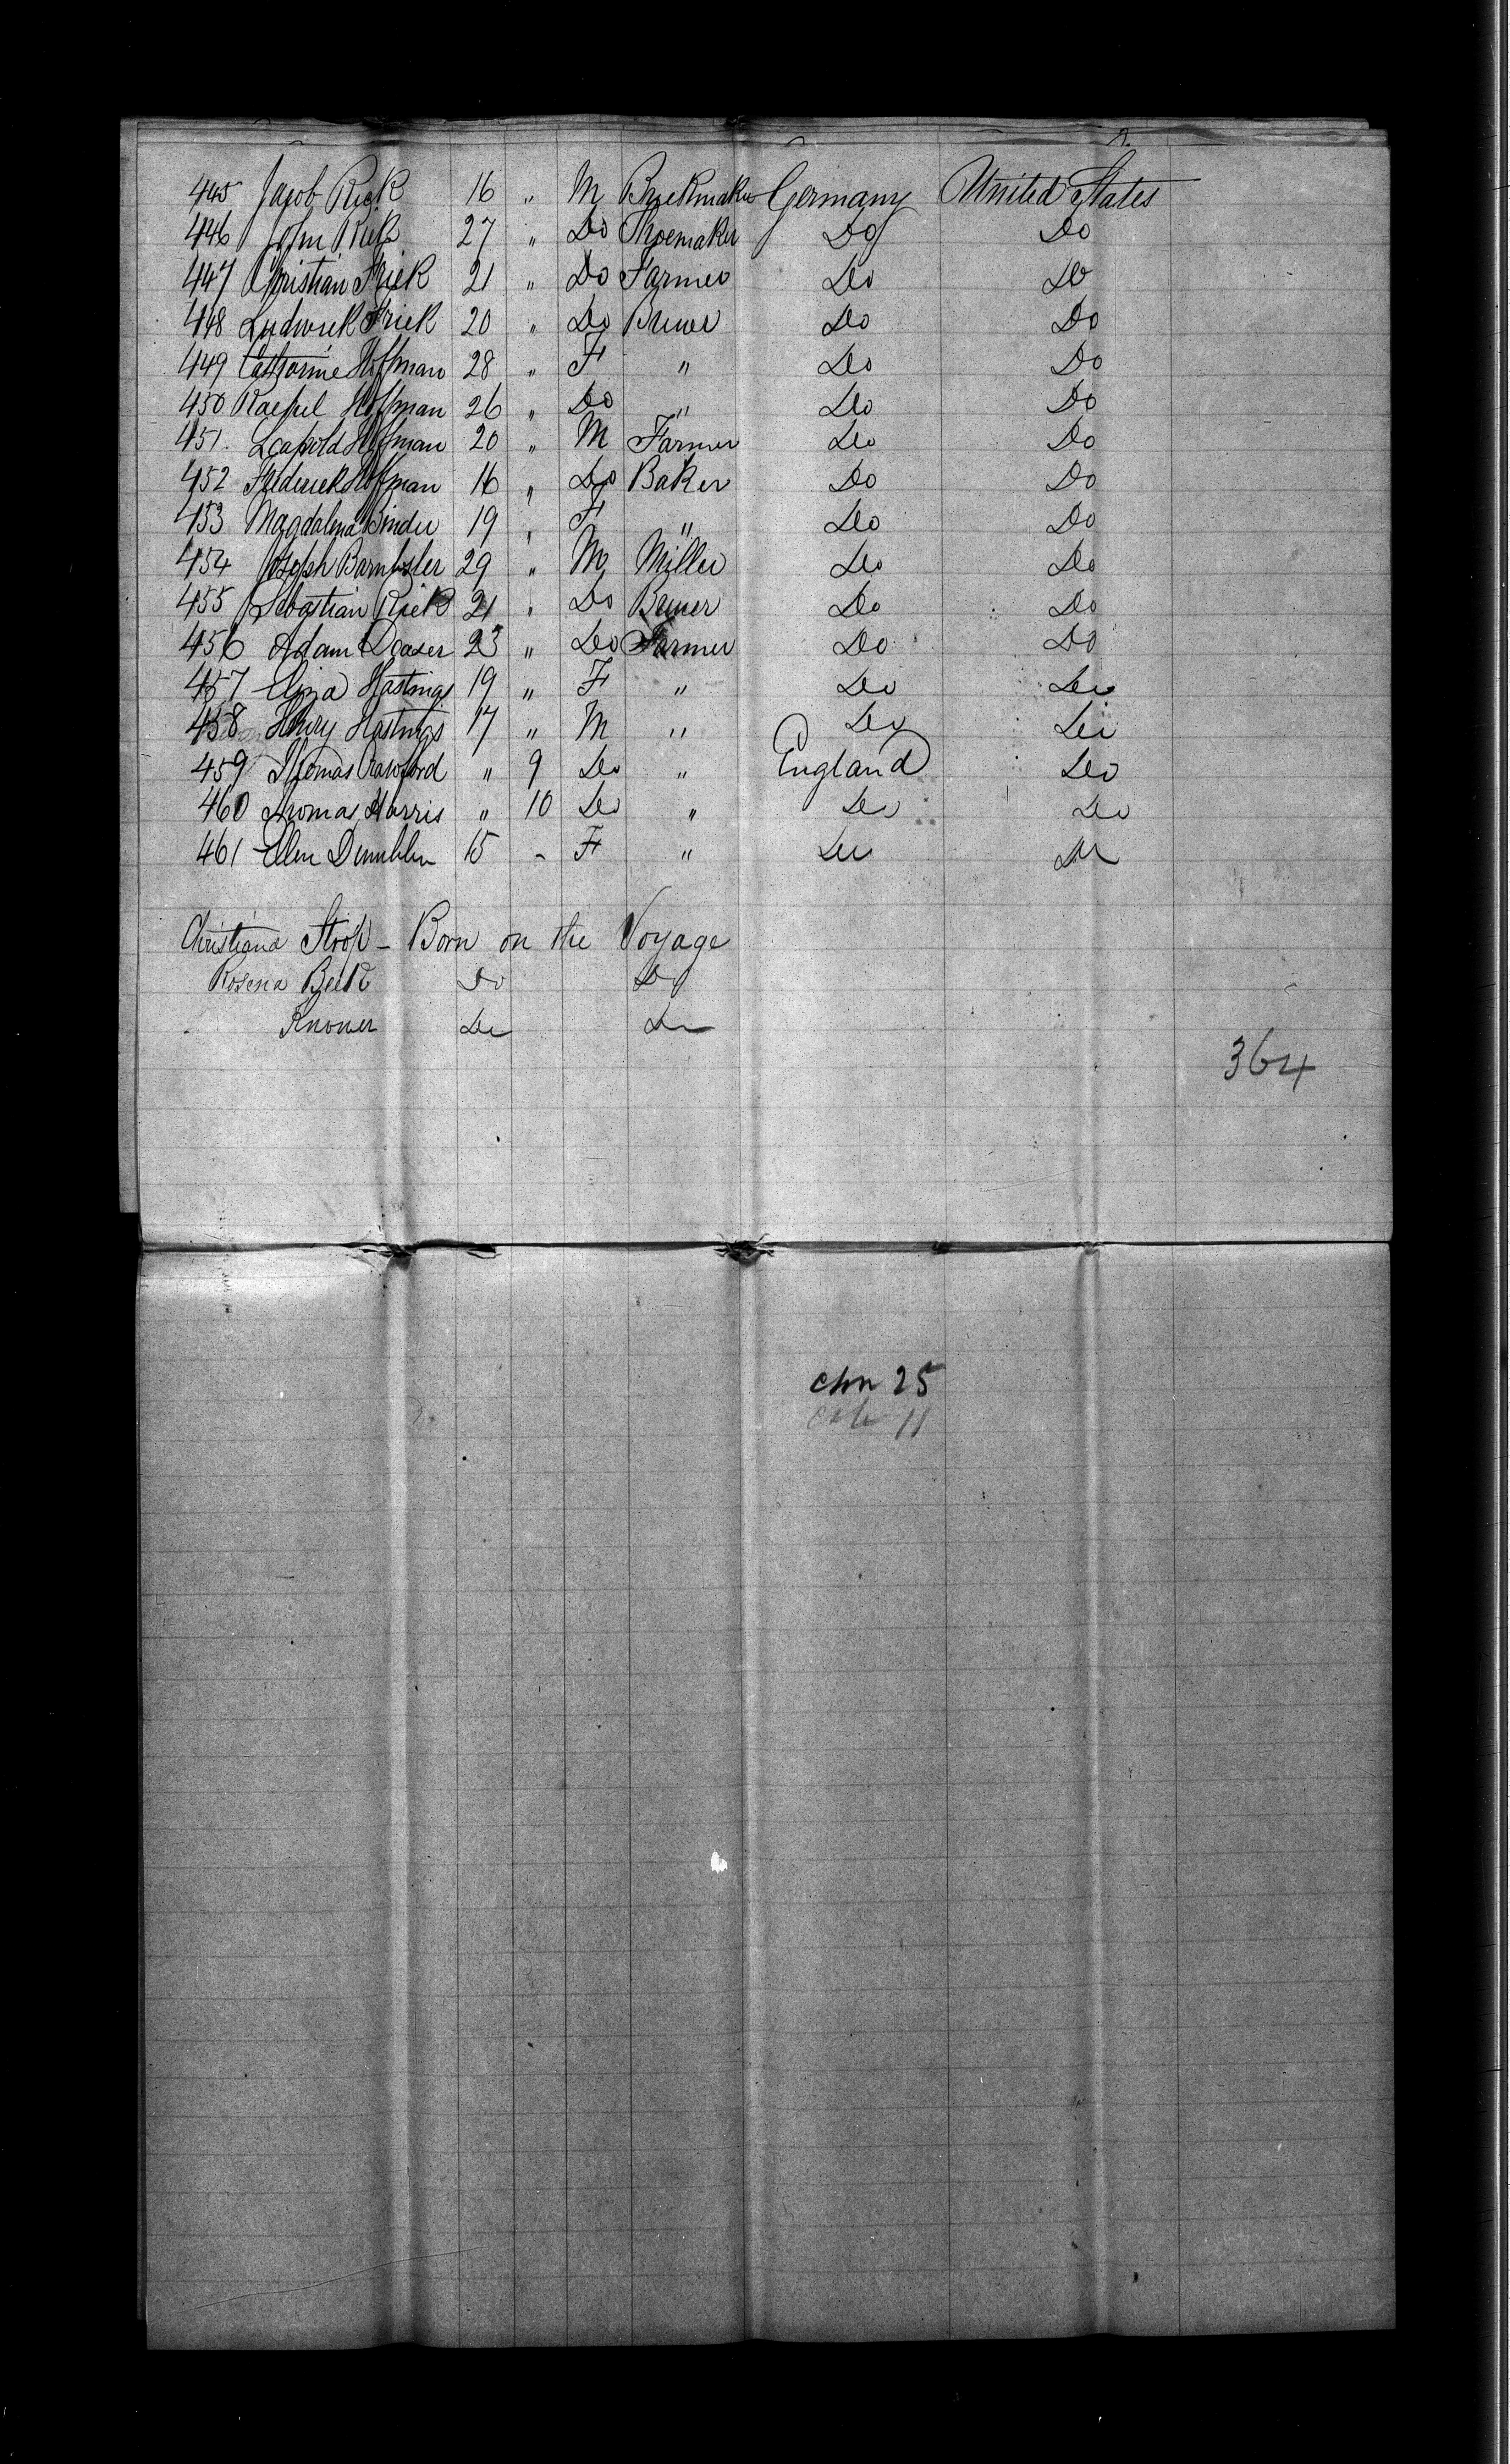 445 Jacob Rick 16 " M Brickmaker Germany United States
446 John Rick 27 " Do Shoemaker Do Do
447 Christian Frick 21 " Do Farmer Do Do
448 Ludwick Frick 20 " Do Brewer Do Do
449 Catharine Hoffman 28 " F " Do Do
450 Hoffman 26 " Do " Do Do
451 Leopold Hoffman 20 " M Farmer Do Do
452 Frederick Hoffman 16 " Do Baker Do Do
453 Magdalena Binder 19 " F " Do Do
454 Joseph 29 " M Miller Do Do
455 Sebastian Rick 21 " Do Brewer Do Do
456 Adam 23 " Do Farmer Do Do
457 Eliza Hastings 19 " F " Do Do
458 Henry Hastings 17 " M " Do Do
459 Thomas Crawford " 9 Do " England Do
460 Thomas Harris " 10 Do " Do Do
461 Ellen 15 - F " Do Do
Christiana - Born on the Voyage
Rosena Do Do
Do Do
364
chn 25
11